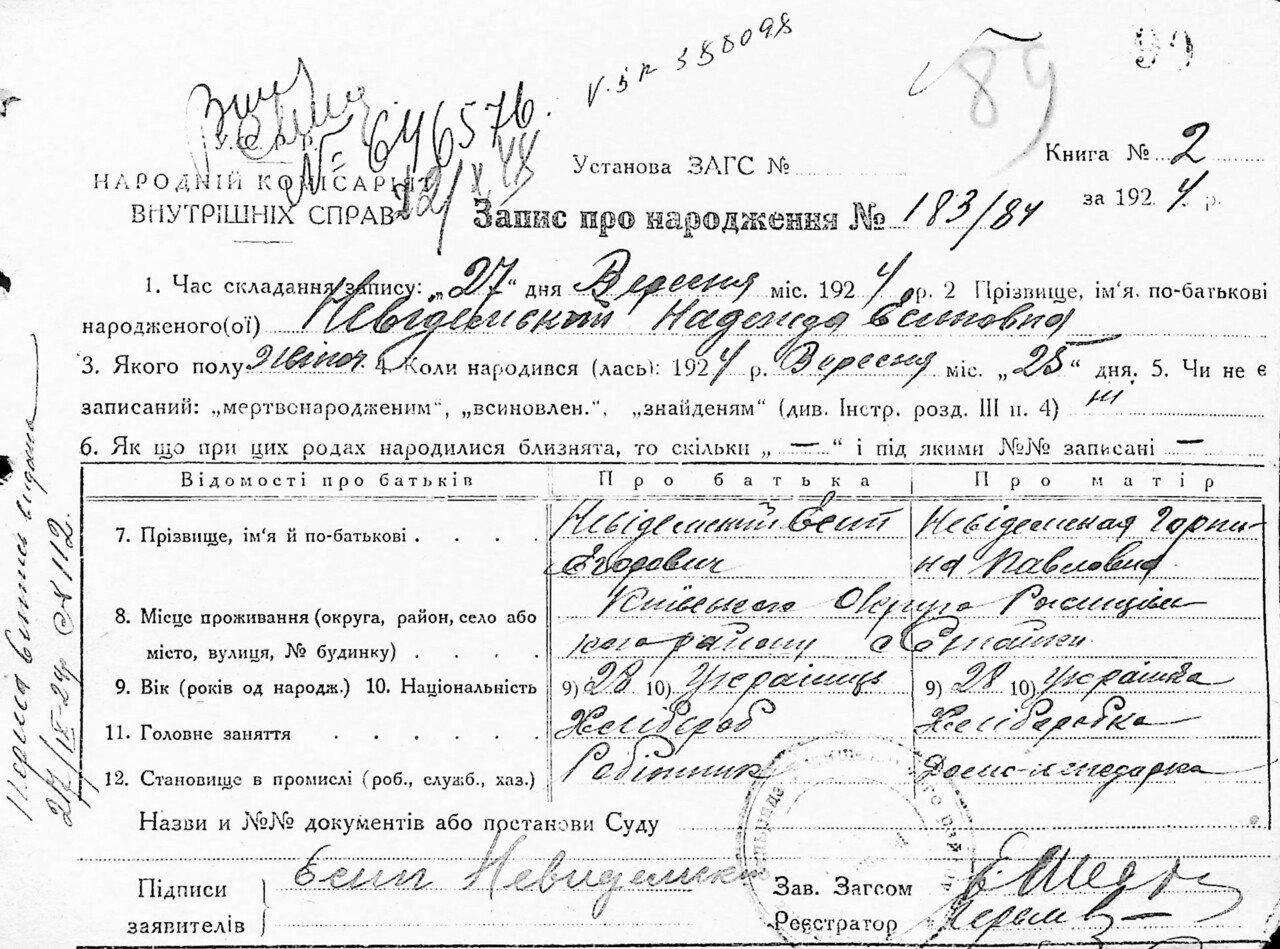 v. 5п 588098
89
99
У.С.Р.Р.
№ 646576
22/X 48
НАРОДНІЙ КОМІСАРІЯТ
ВНУТРІШНІХ СПРАВ
Установа ЗАГС №
Книга № 2
за 1924 р.
Запис про народження № 183/84
1. Час складання запису: „27“ дня Вересня міс. 1924 р. 2 Прізвище, ім'я, по-батькові
народженого(ої) Невідемский Надежда Есиповна
3. Якого полу жіноч. 4. Коли народився (лась): 1924 р. Вересня міс. „25“ дня. 5. Чи не є
записаний: „мертвонародженим“, „всиновлен.“, „знайденям“ (див. Інстр. розд. III п. 4) ні
6. Як що при цих родах народилися близнята, то скільки „—“ і під якими №№ записані —
Відомості про батьків Про батька Про матір
7. Прізвище, ім'я й по-батькові . . . . Невідемский Есип Егорович Невідемская Горпина Павловна
8. Місце проживання (округа, район, село або Київського Округа
місто, вулиця, № будинку) . . . . району с
9. Вік (років од народж.) 10. Національність 9) 28 10) Українець 9) 28 10) Українка
11. Головне заняття . . . . . . Хлібороб Хліборобка
12. Становище в промислі (роб., служб., хаз.) Робітник Домогосподарка
Назви и №№ документів або постанови Суду
Підписи
заявителів
Есип Невидемский
Зав. Загсом
Реєстратор
27/IX-24р № 112